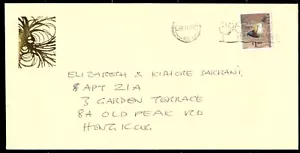 ELIZABETH & KISHORE SAKHRANI
8 APT 21A
3 GARDEN TERRACE
8A OLD PEAK RD
HONG KONG